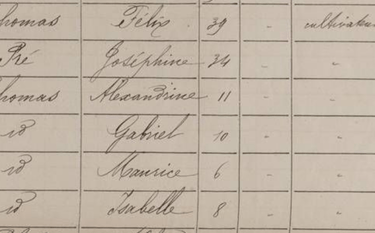 homas Félix 39 - cultivateu
Pré Joséphine 34 - "
homas Alexandrine 11 - "
id Gabriel 10 - "
id Maurice 6 - "
id Isabelle 8 - "